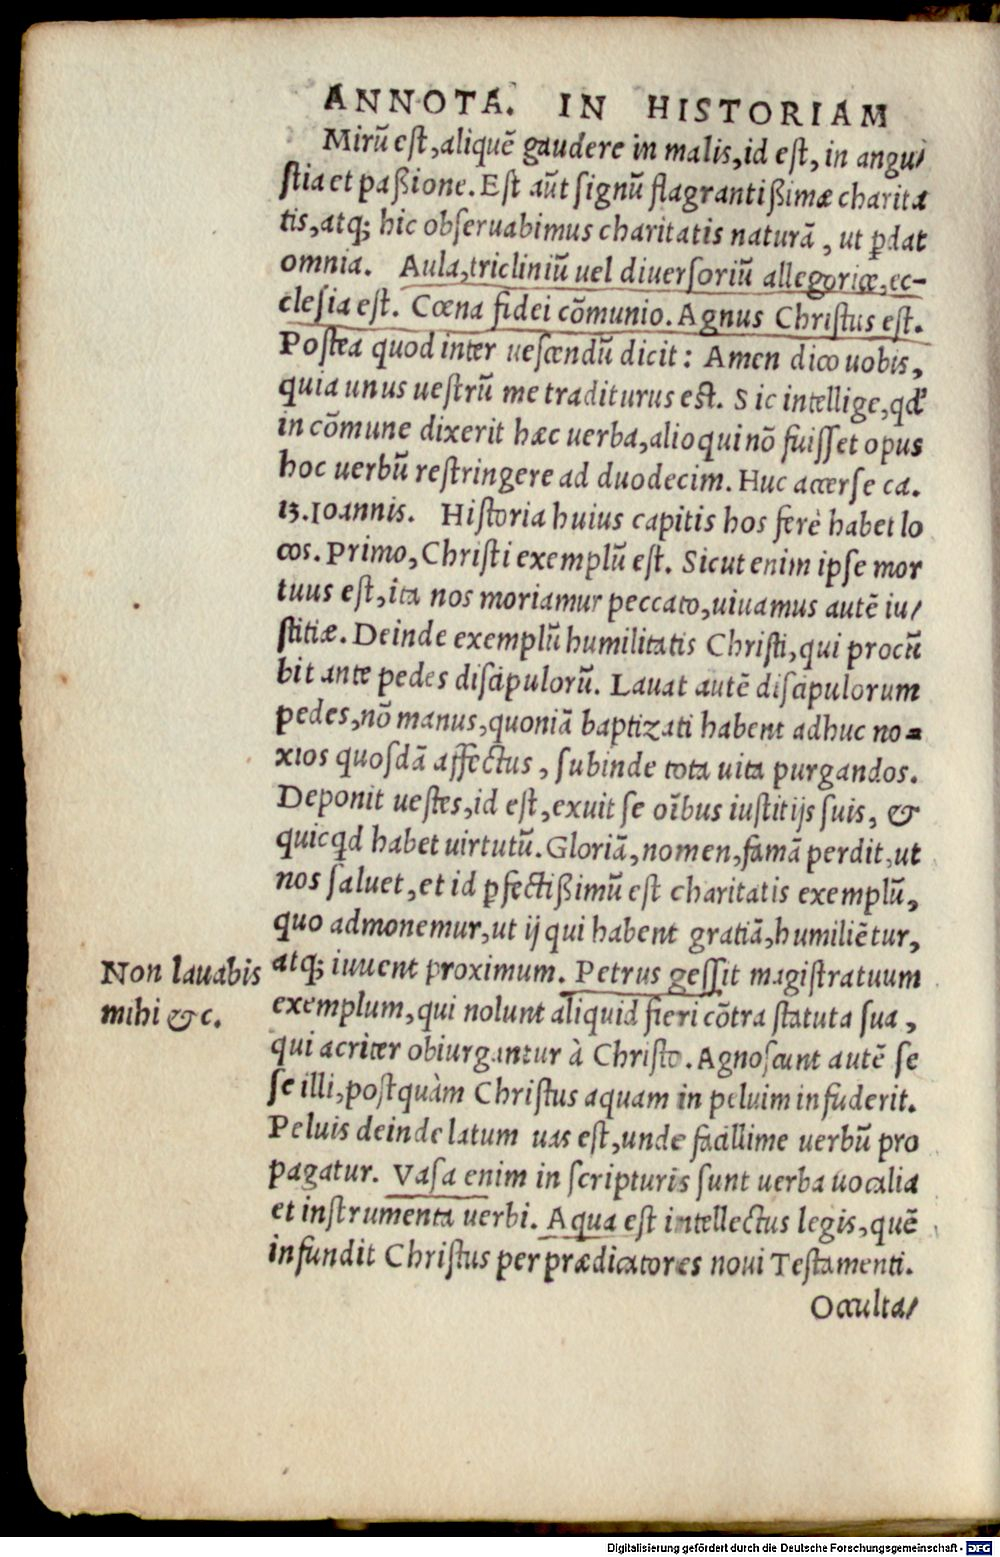 ANNOTA. IN HISTORIAM
Mirũ est, aliquẽ gaudere in malis, id est, in angu/
stia et paßione. Est aũt signũ flagrantißimæ charita
tis, atq; hic obseruabimus charitatis naturã, ut ꝑdat
omnia. Aula, tricliniũ uel diuersoriũ allegoricæ, ec-
clesia est. Cœna fidei cõmunio. Agnus Christus est.
Postea quod inter uescendũ dicit: Amen dico uobis,
quia unus uestrũ me traditurus est. Sic intellige, qđ
in cõmune dixerit hæc uerba, alioqui nõ fuisset opus
hoc uerbũ restringere ad duodecim. Huc accerse ca.
13. Ioannis. Historia huius capitis hos ferè habet lo
cos. Primo, Christi exemplũ est. Sicut enim ipse mor
tuus est, ita nos moriamur peccato, uiuamus autẽ iu/
stitiæ. Deinde exemplũ humilitatis Christi, qui procũ
bit ante pedes discipulorũ. Lauat autẽ discipulorum
pedes, nõ manus, quoniã baptizati habent adhuc no-
xios quosdã affectus, subinde tota uita purgandos.
Deponit uestes, id est, exuit se oĩbus iustitijs suis, &
quicqd habet uirtutũ. Gloriã, nomen, famã perdit, ut
nos saluet, et id ꝑfectißimũ est charitatis exemplũ,
quo admonemur, ut ij qui habent gratiã, humiliẽtur,
atq; iuuent proximum. Petrus gessit magistratuum
Non lauabis
mihi &c.
exemplum, qui nolunt aliquid fieri cõtra statuta sua,
qui acriter obiurgantur à Christo. Agnoscunt autẽ se
se illi, postquàm Christus aquam in peluim infuderit.
Peluis deinde latum uas est, unde facillime uerbũ pro
pagatur. Vasa enim in scripturis sunt uerba uocalia
et instrumenta uerbi. Aqua est intellectus legis, quẽ
infundit Christus per prædicatores noui Testamenti.
Occulta/
Digitalisierung gefördert durch die Deutsche Forschungsgemeinschaft - DFG